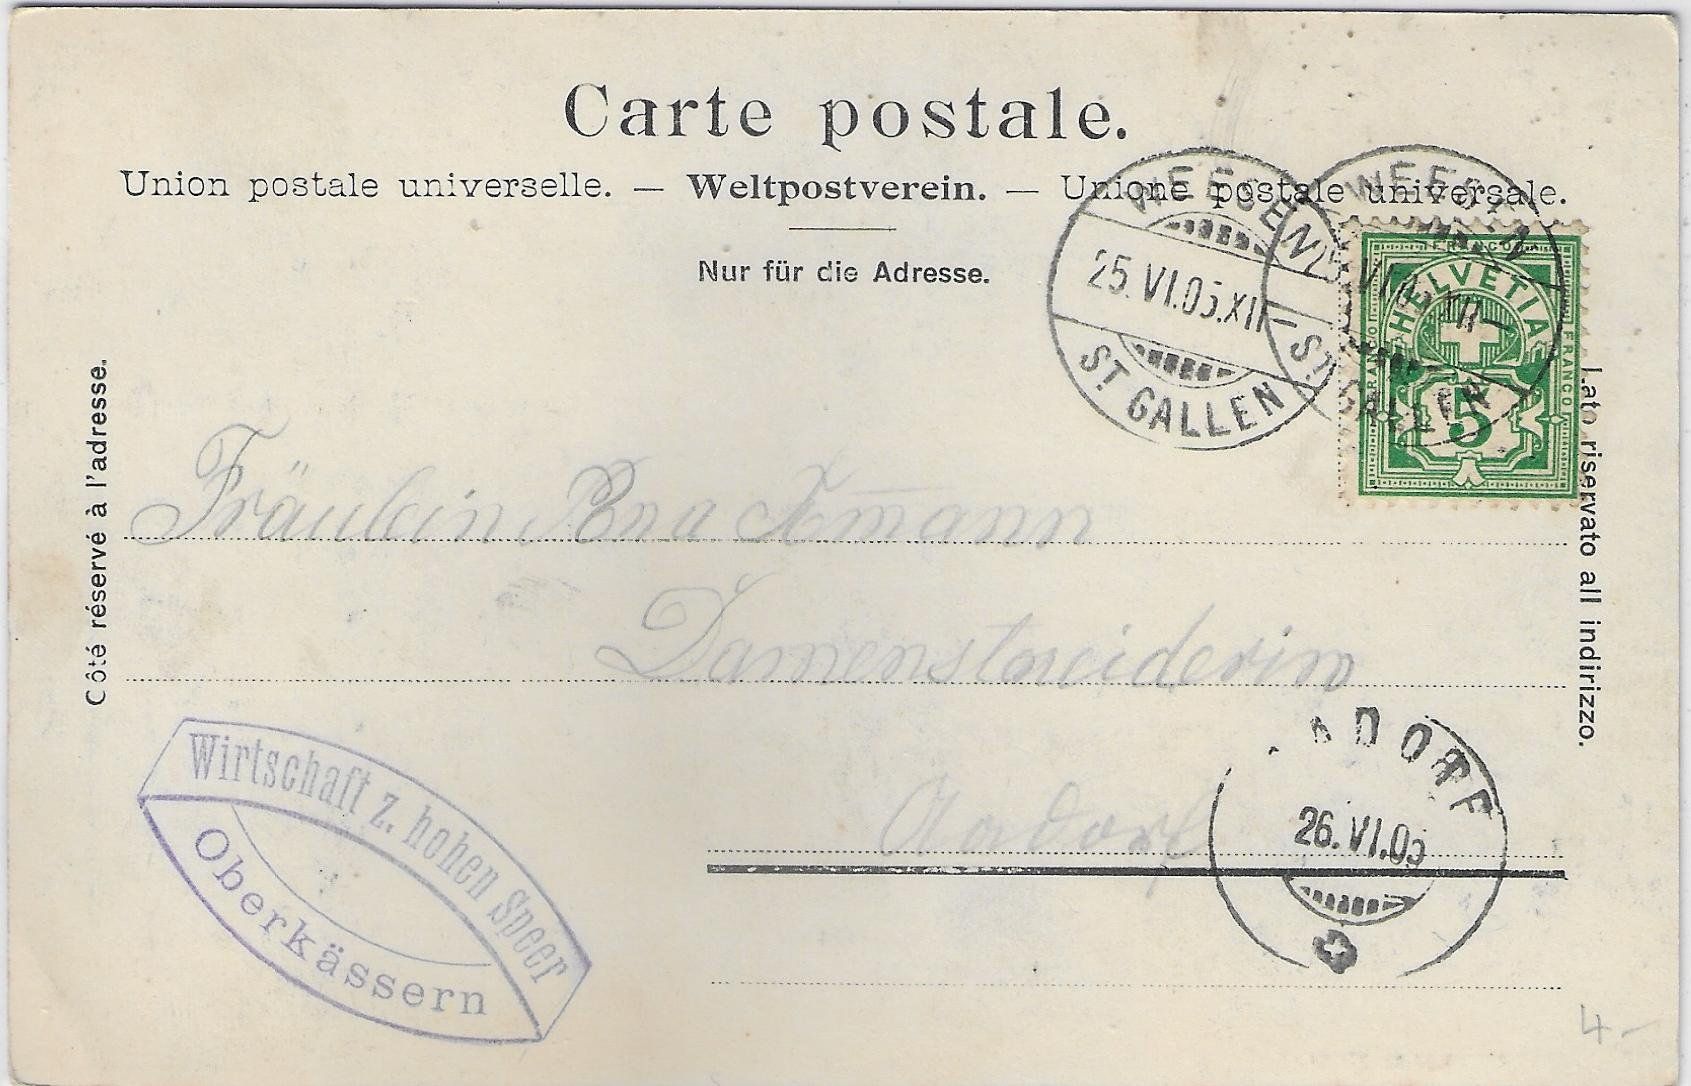 Carte postale.
Union postale universelle. — Weltpostverein. — Unione postale universale.
Nur für die Adresse.
Côté réservé à l'adresse.
Lato riservato all indirizzo.
WEESEN
25.VI.05.XII
ST. GALLEN
WEESEN
VI.05.XII
ST. GALLEN
FRANCO
HELVETIA
FRANCO
FRANCO
5
Fräulein
Aadorf
ADORF
26.VI.05
Wirtschaft z. hohen Speer
Oberkässern
4-